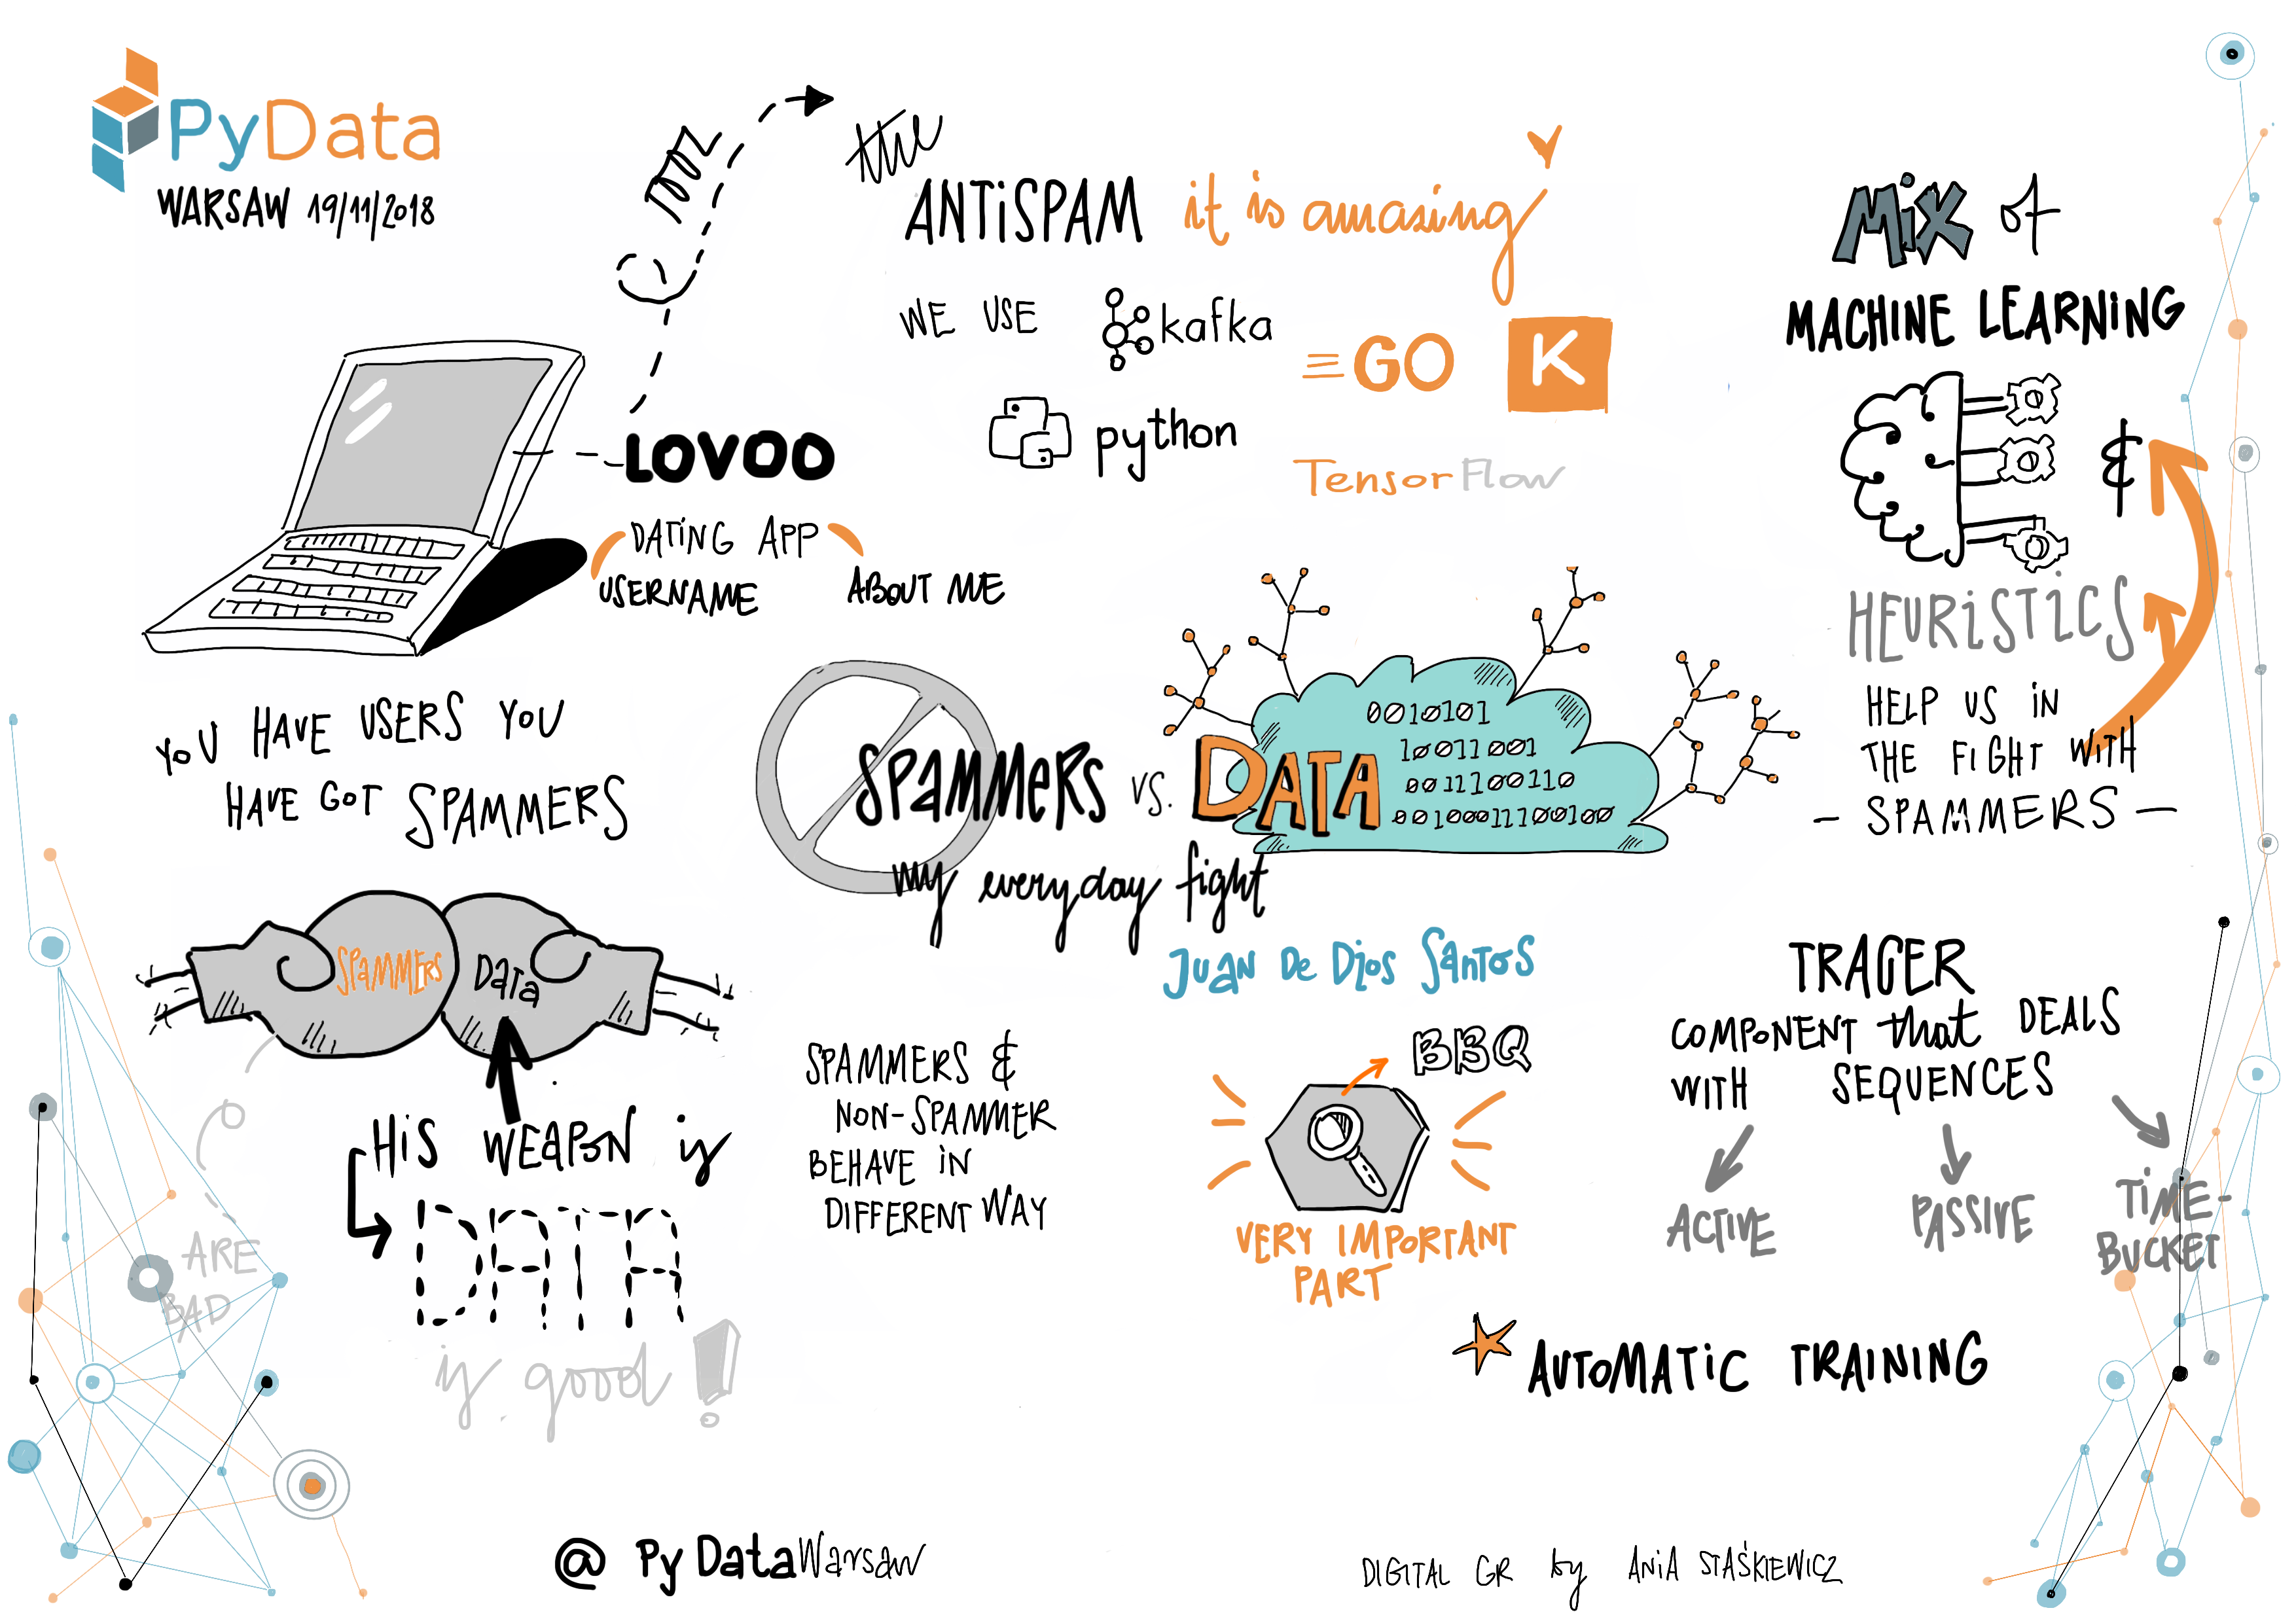 PyData
WARSAW 19/11/2018
the
ANTiSPAM it is amazing
WE USE kafka
GO K
python
TensorFlow
MiX of
MACHINE LEARNiNG
&
HEURiSTiCS
HELP US iN
THE FIGHT WiTH
- SPAMMERS -
LOVOO
DATiNG APP
USERNAME
ABOUT ME
YOU HAVE USERS YOU
HAVE GOT SPAMMERS
SPAMMERS vs. DATA
0010101
10011001
0011100110
00100011100100
my everyday fight
JUAN De Dios SANTOS
SPAMMERS
DATA
HiS WEAPON is
DATA
is good!
ARE
BAD
SPAMMERS &
NON-SPAMMER
BEHAVE iN
DIFFERENT WAY
BBQ
VERY IMPORTANT
PART
TRACER
COMPONENT that DEALS
WITH SEQUENCES
ACTiVE
PASSIVE
TiME-
BUCKET
AUTOMATiC TRAINiNG
@ PyDataWarsaw
DIGITAL GR by ANiA STAŚKIEWICZ